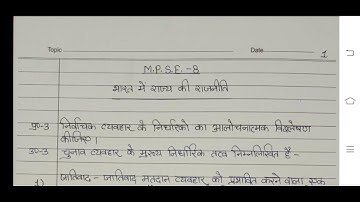 Topic Date 1
M.P.S.E.-8
भारत में राज्य की राजनीति
प्र०-3 निर्वाचक व्यवहार के निर्धारकों का आलोचनात्मक विश्लेषण
कीजिए।
उ०-3 चुनाव व्यवहार के मुख्य निर्धारक तत्व निम्नलिखित है -
1) जातिवाद - जातिवाद मतदान व्यवहार को प्रभावित करने वाला एक